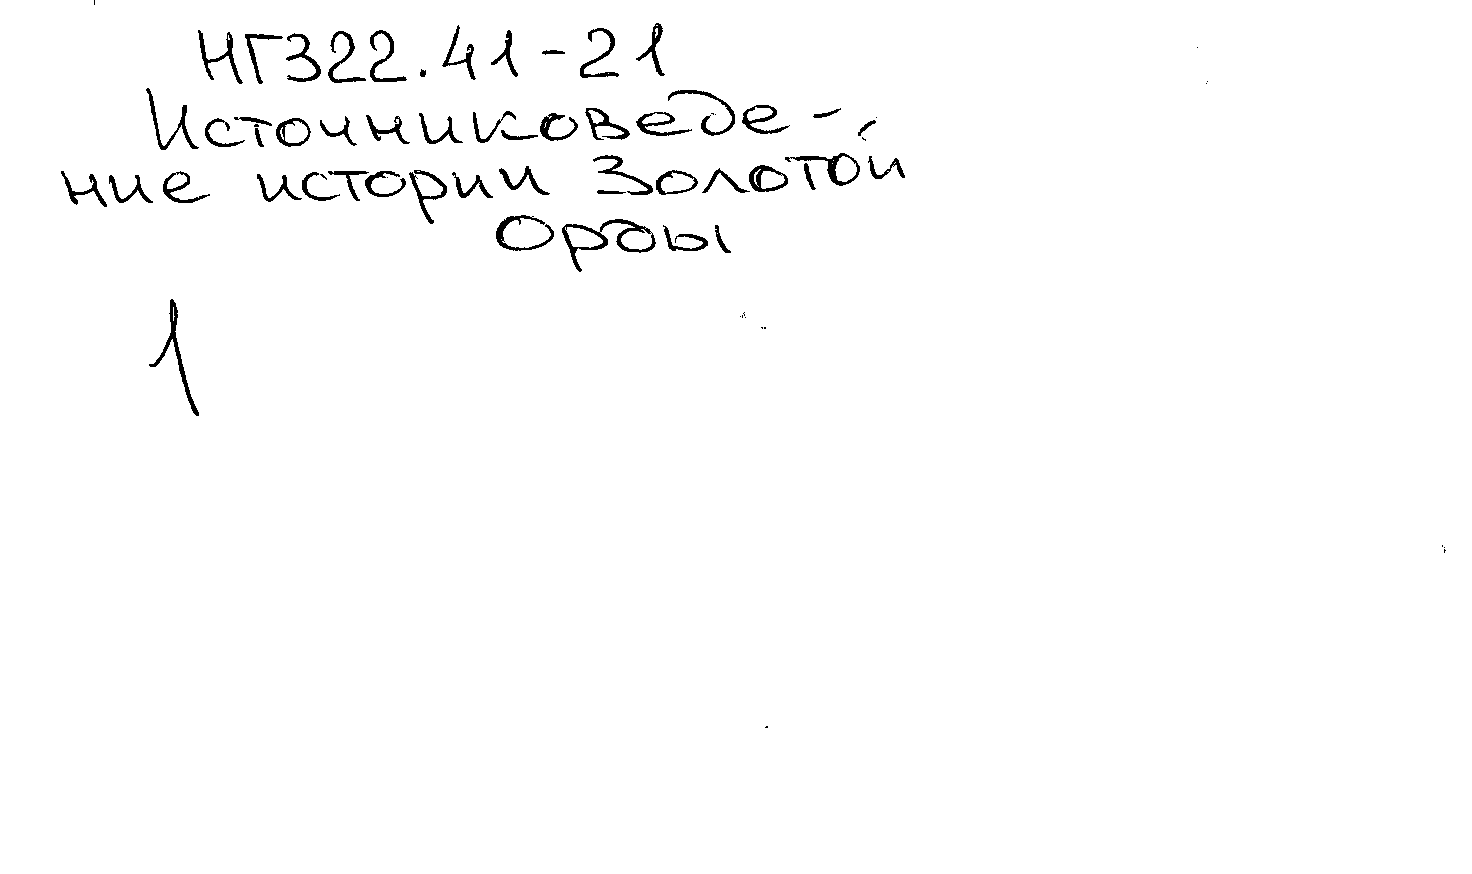 НГ322.41-21
Источниковеде-
ние истории Золотой
Орды
1